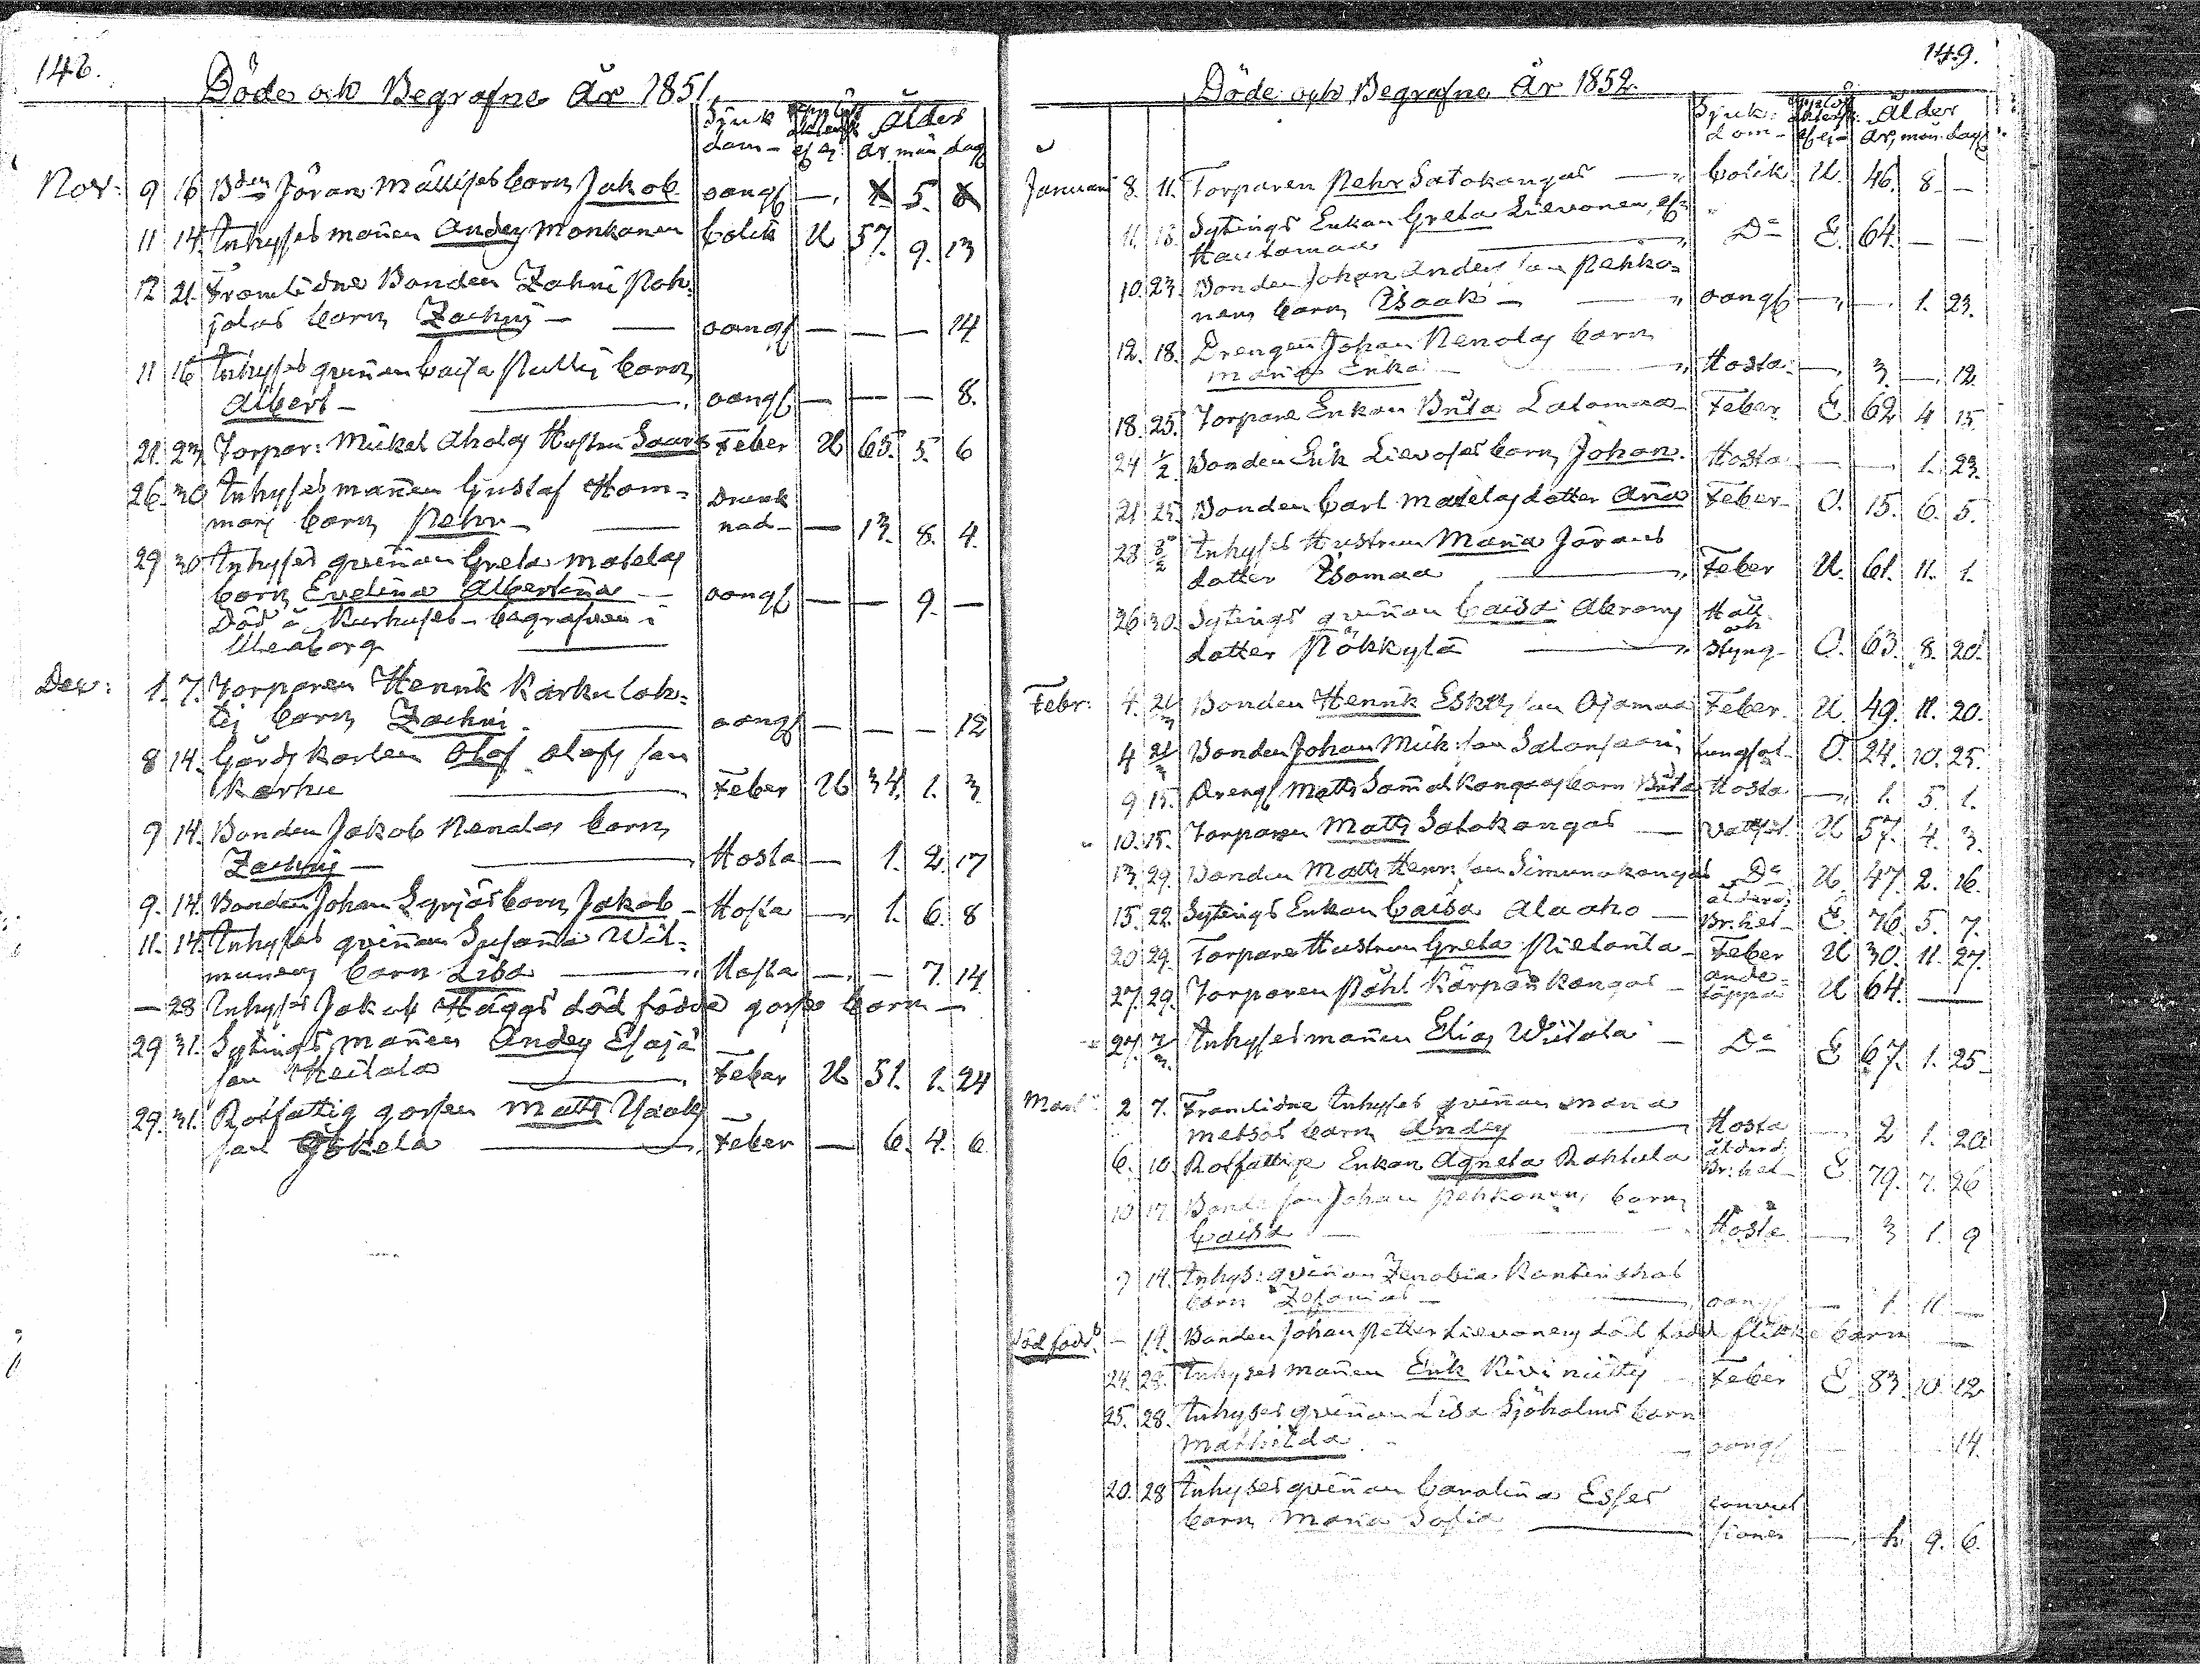 148.
Döde och Begrafne År 1851.
Sjuk dom - Ålder
ef ej År mån dag
Nov: 9 16 Bden Jöran Mällises barn Jakob oangf — 5.
11 14. Inhyses mañen Anders Monkanen Colik U 57. 9. 13
12 21. Framlidne Bonden Zachri Poh-
jolas barn Zachris — oangf — — — 14
11 16 Inhyses qviñan Caisa barn
Albert — oangf — — — 8.
21. 23 Torpar: Mickel Aholas Hustru Saara Feber U 65. 5. 6
26. 30 Inhyses mañen Gustaf Hom- Drunk
mas barn Pehr — nad — — 13. 8. 4.
29 30 Inhyses qviñan Greta Matelas
barn Evelina Albertina — oangf — — 9. —
Död å Kurhuset - begrafven i
Uleåborg
Dec: 1. 7. Torparen Henrik Karkulah-
tis barn Zachris. oangf — — — 12
8 14. Gårds karlen Olof Olofs son
Karhu Feber U 34. 1. 3
9 14. Bonden Jakob Nenolas barn
Zachris — Hosta — 1. 2. 17
9. 14. Bonden Johan Syrjäs barn Jakob — Hosta — 1. 6. 8
11. 14. Inhyses qviñan Susaña Wil-
munens barn Lisa — Hosta — — 7. 14
— 28 Inhyses Jakob Häggs död födde gosse barn —
29 31. Sytings mañen Anders Esajä
son Heitala Feber U 51. 1. 24
29. 31. Rotfattig gossen Matts Isaaks
son Jokela Feber — 6. 4. 6
149.
Döde och Begrafne År 1852.
Sjuk- dom - Ålder
ef ej År, mån. dag
Januari 8. 11. Torparen Pehr Satokangas — Colik U. 46. 8 —
11. 13. Sytings Enkan Greta Lievonen, ef:
Hautamaa Do E. 64. — —
10. 23. Bonden Johan Anders son Pehko-
nens barn Isaak — oangf — — 1. 23.
12. 18. Drengen Johan Nenolas barn
Maria Erika — Hosta — 3. — 12.
18. 25. Torpare Enkan Brita Latomaa — Feber E. 62 4 15
24 1/2 Bonden Erik Lievoses barn Johan. Hosta — — 1. 23.
21 25. Bonden Carl Matelas dotter Aña Feber O. 15. 6. 5.
28 Inhyses Hustrun Maria Jörans
dotter Isomaa Feber U. 61. 11. 1.
26 30. Sytings qviñan Caisa Abrams Håll
och
dotter Pökkylä styng — O. 63. 8. 20.
Febr: 4. Bonden Henrik Esk: son Ojamaa Feber U. 49. 11. 20.
4 Bonden Johan Mick: son Salonsaari O. 24. 10. 25.
9 15. Drengs Matts Samalkangas barn Brita Hosta — 1. 5. 1.
10. 15. Torparen Matts Satokangas — Vattsot. U 57. 4. 3.
13. 29. Bonden Matts Henr: son Simunakangas Do U. 47. 2. 16.
15. 22. Sytings Enkan Caisa Alaaho — ålderd: Br: het — E. 76. 5. 7.
20 29. Torpare Hustrun Greta Pietarila — Feber U 30. 11. 27.
27. 29. Torparen Påhl Kärpänkangas — ande- täppa U 64. —
27. Inhyses mañen Elias Wiitala — Do E 67. 1. 25
Mart: 2 7. Framlidne Inhyses qviñan Maria
Metsos barn Anders Hosta — 2 1. 20
6. 10 Rotfattige Enkan Agneta Rahkula ålderd: Br: het — E. 79. 7. 26
10 17. Bonde son Johan Pehkonens barn
Caisa — Hosta — 3 1. 9
7 14. Inhys: qviñan Zenobia
barn Zefanias — oangf — 1. 11. —
död född — 14. Bonden Johan Petter Lievonens död född flicke barn —
24. 28. Inhyses mañen Erik Kiviniitty Feber E 83. 10. 12
25. 28. Inhyses qviñan Lisa Sjöholms barn
Mathilda. — oangf — 14.
20. 28 Inhyses qviñan Carolina Esses convul
barn Maria Sofia — sioner — 9. 6.